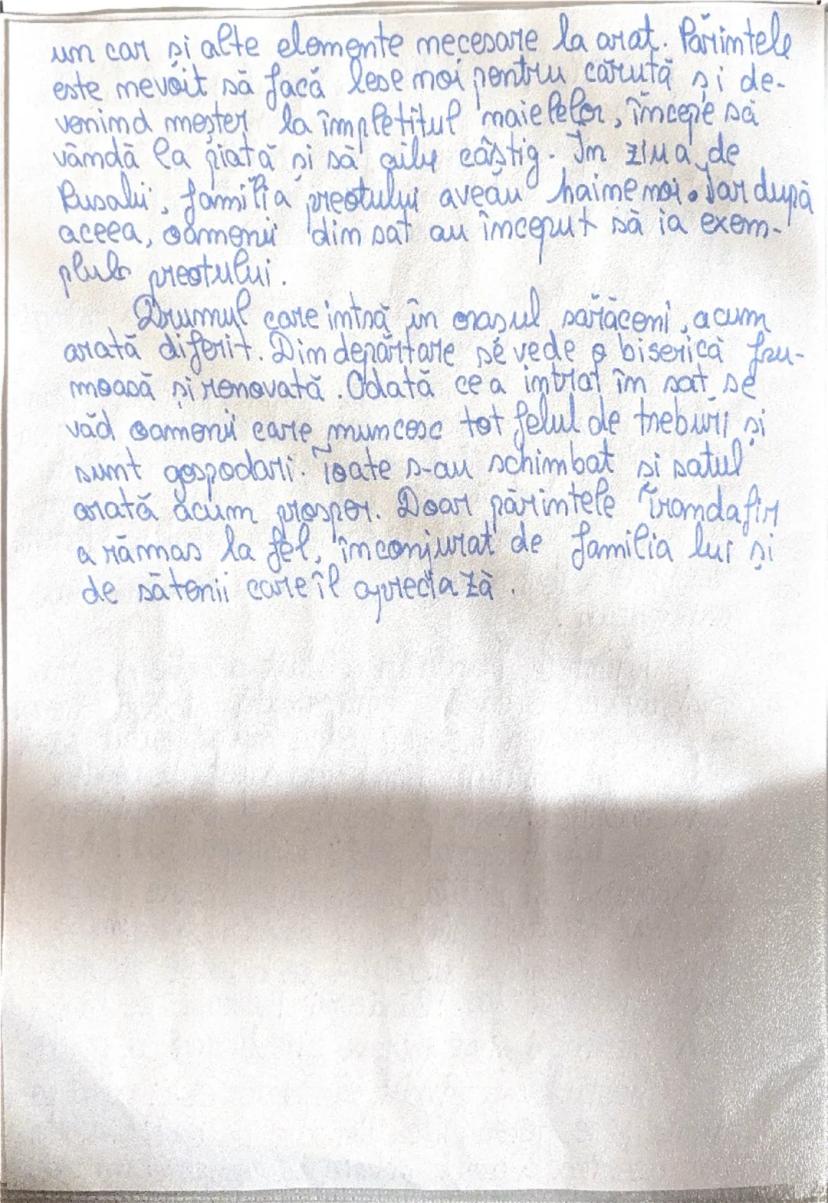 un car și alte elemente necesare la arat. Părintele
este nevoit să facă lese noi pentru căruță și de-
venind meșter la împletitul naielelor, începe să
vândă la piață și să aibe câștig. În ziua de
Rusalii, familia preotului aveau haine noi. Iar după
aceea, oamenii din sat au început să ia exem-
plulo preotului.
Drumul care intră în orașul sărăceni, acum
arată diferit. Din depărtare se vede o biserică fru-
moasă și renovată. Odată ce a intrat în sat se
văd oamenii care muncesc tot felul de treburi și
sunt gospodari. Toate s-au schimbat și satul
arată acum prosper. Doar părintele Trandafir
a rămas la fel, înconjurat de familia lui și
de sătenii care îl apreciază.